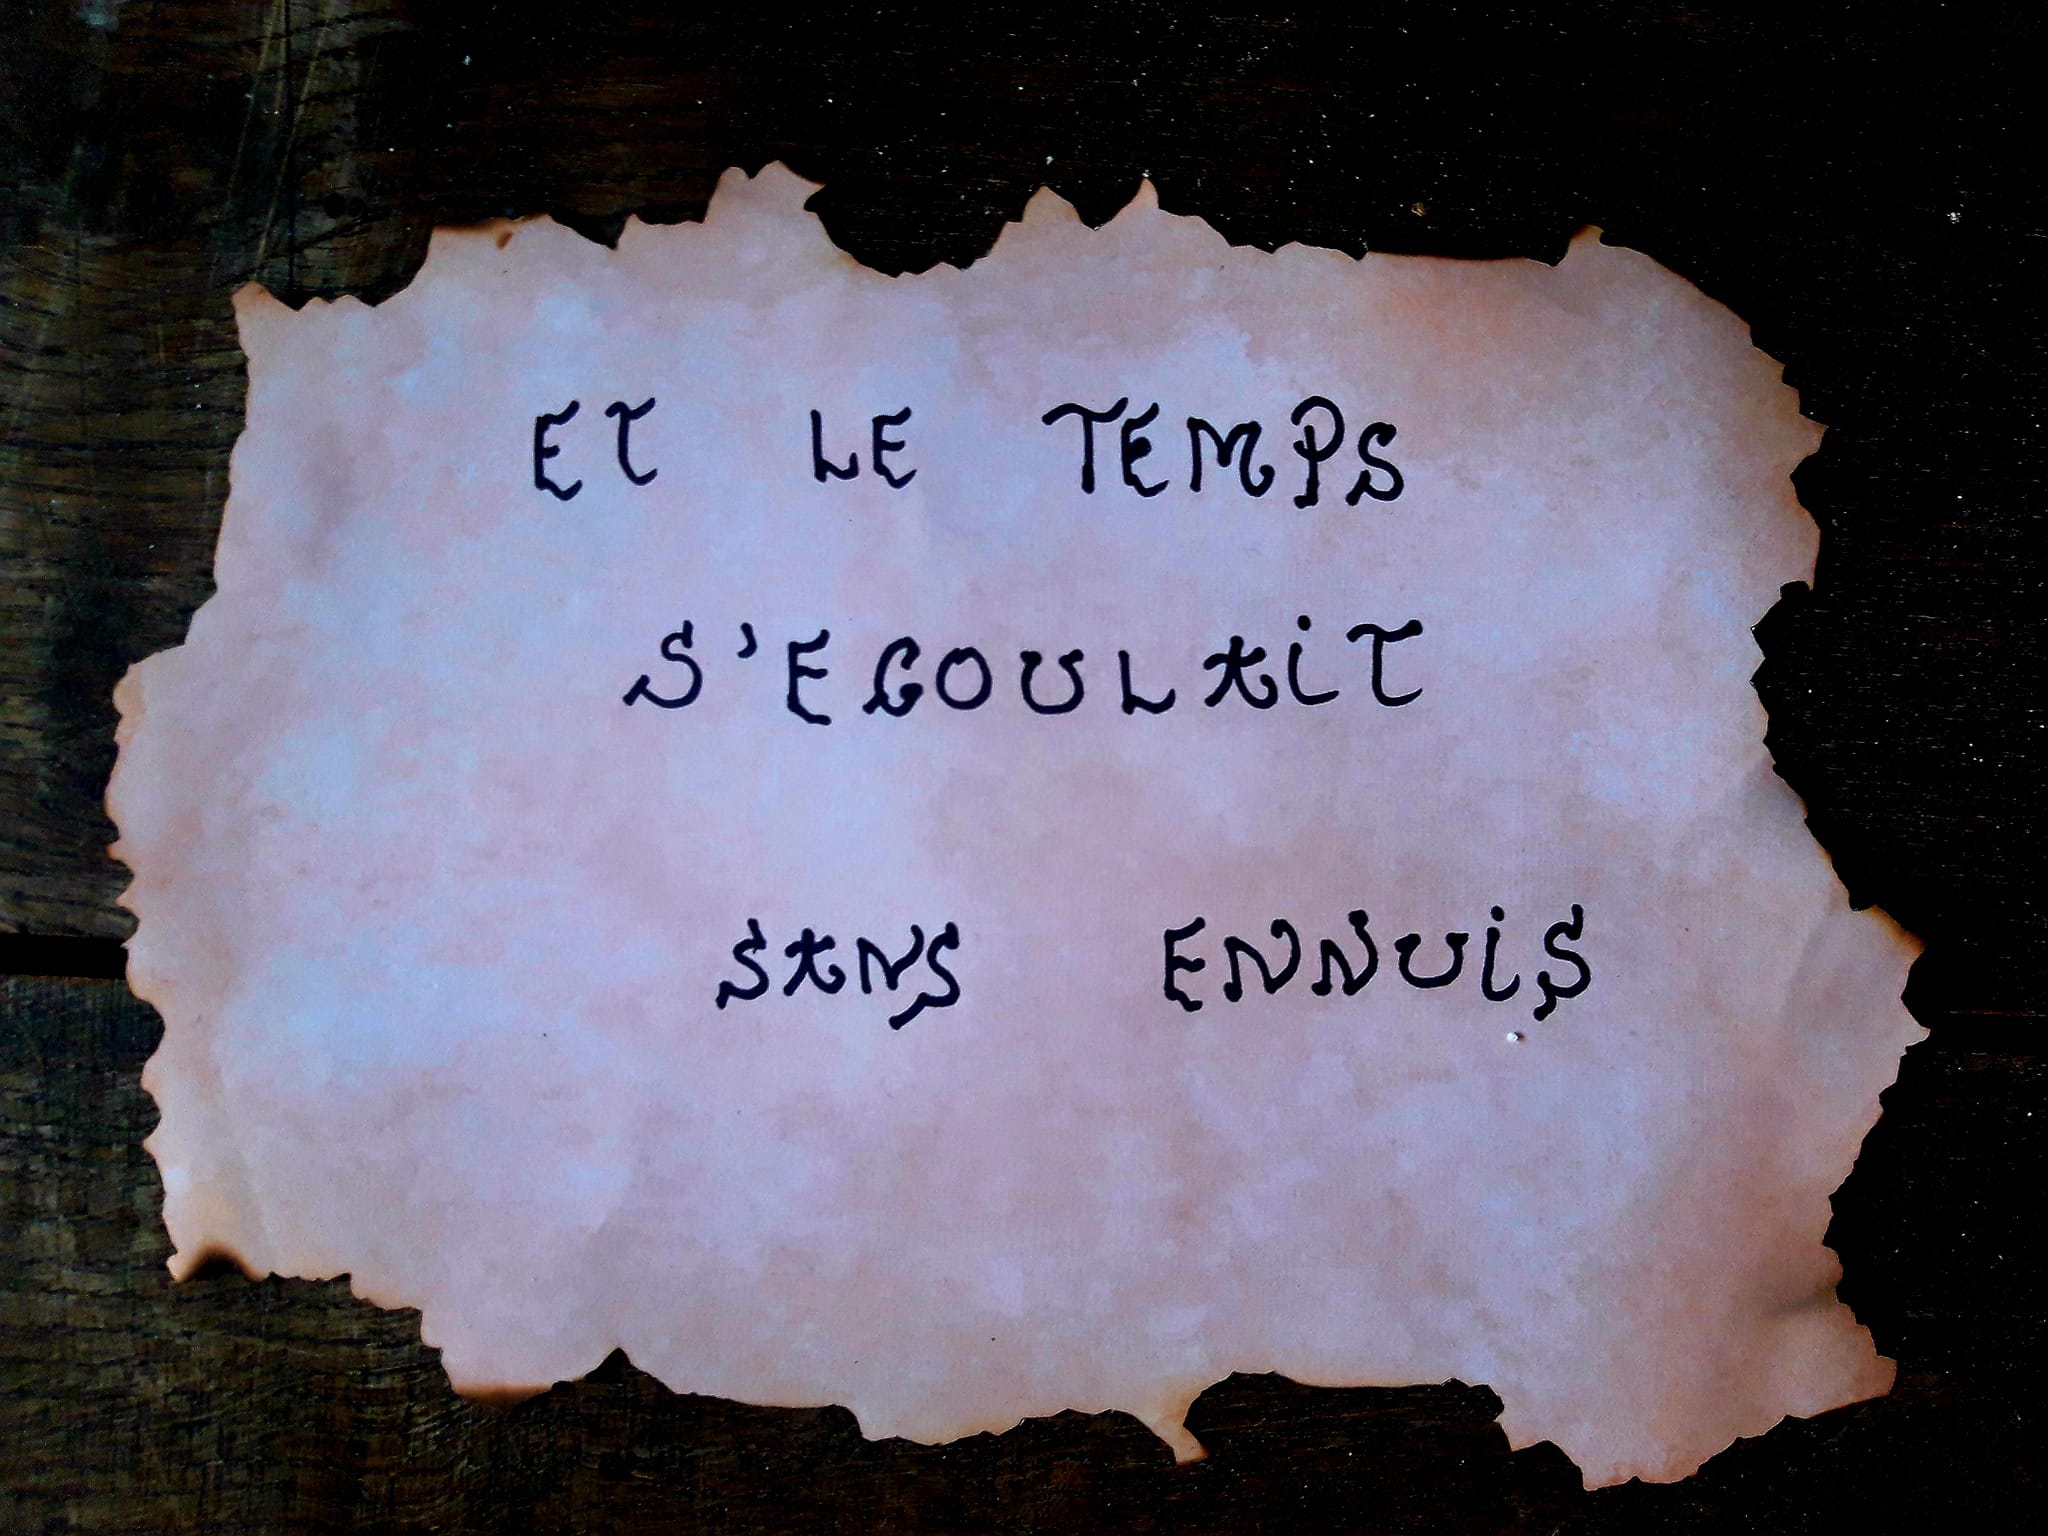 ET LE TEMPS
S'ECOULAIT
SANS ENNUIS